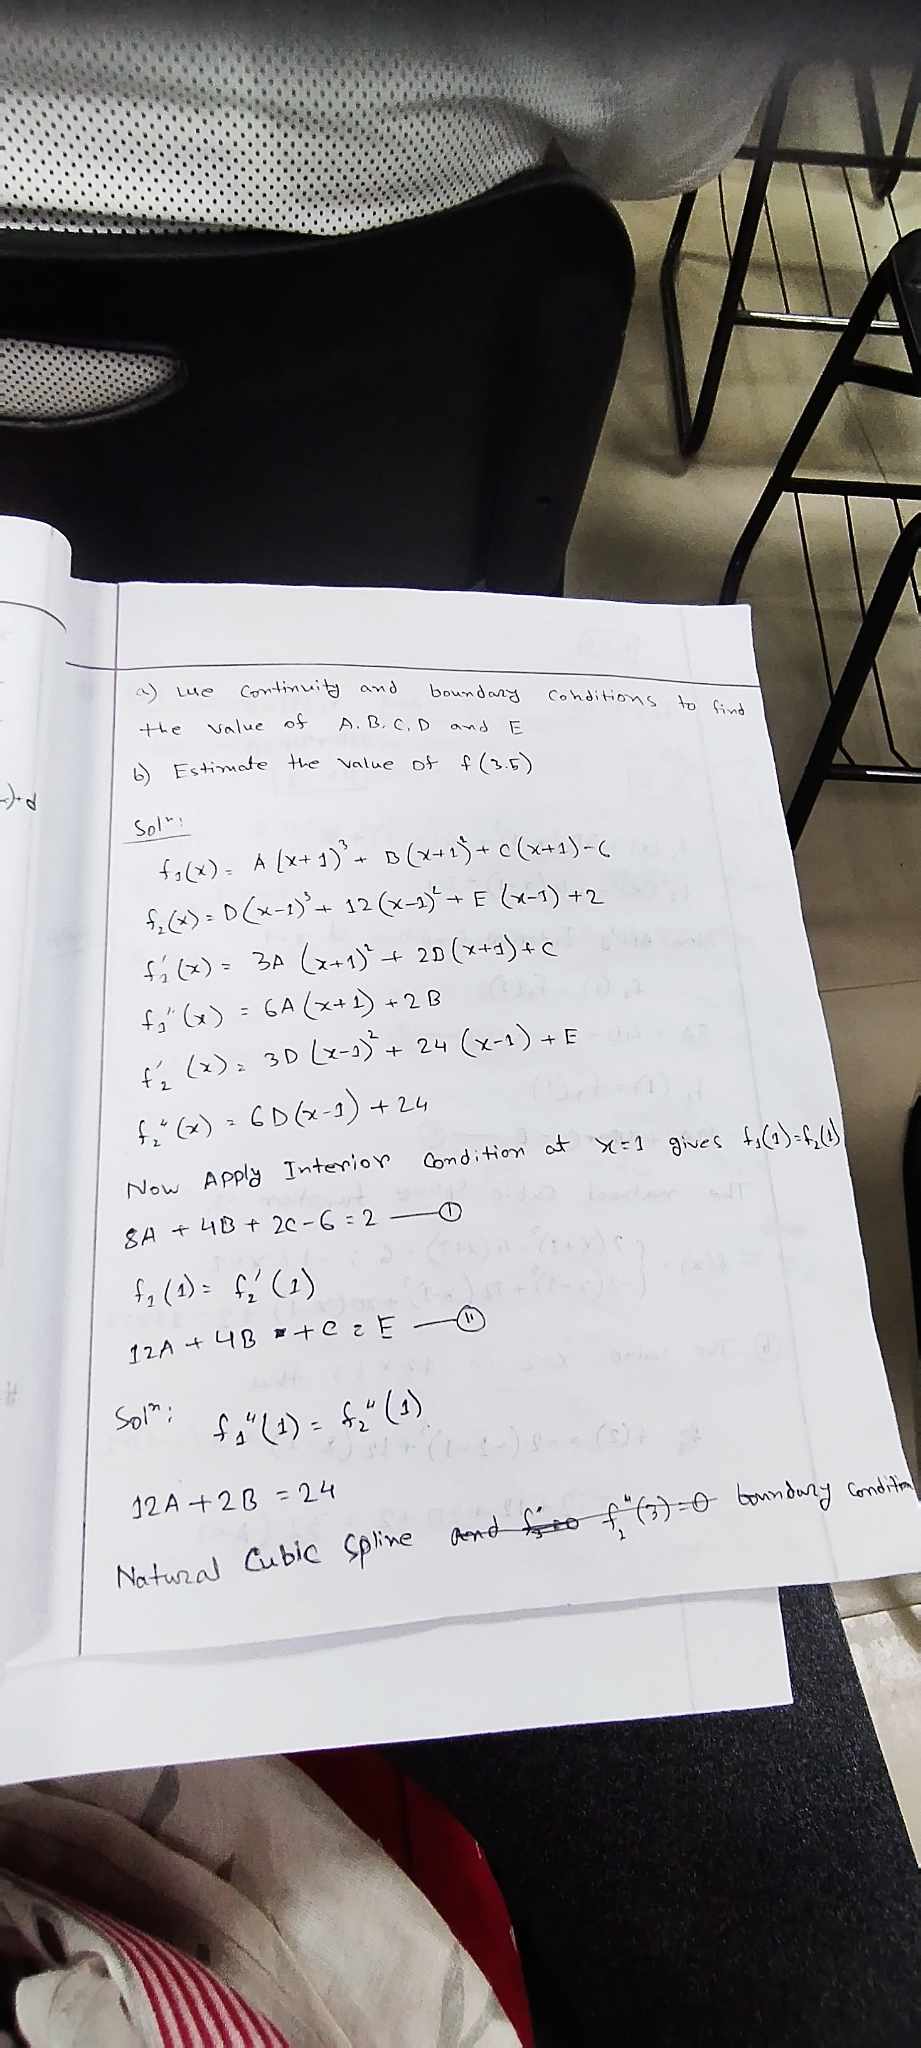 a) Use Continuity and boundary Conditions to find
the value of A. B. C, D and E
b) Estimate the value of f(3.5)
Solⁿ:
f₁(x) = A(x+1)³ + B(x+1)² + C(x+1)-6
f₂(x) = D(x-1)³ + 12(x-1)² + E(x-1) +2
f₁'(x) = 3A (x+1)² + 2B(x+1)+C
f₁"(x) = 6A(x+1) +2B
f₂'(x) = 3D(x-1)² + 24(x-1) + E
f₂"(x) = 6D(x-1) +24
Now Apply Interior Condition at x=1 gives f₁(1)=f₂(1)
8A + 4B + 2C-6 = 2 — (I)
f₁(1) = f₂'(1)
12A + 4B + C = E — (II)
Solⁿ: f₁"(1) = f₂"(1)
12A + 2B = 24
Natural Cubic Spline and f₂"(3)=0 boundary Condition